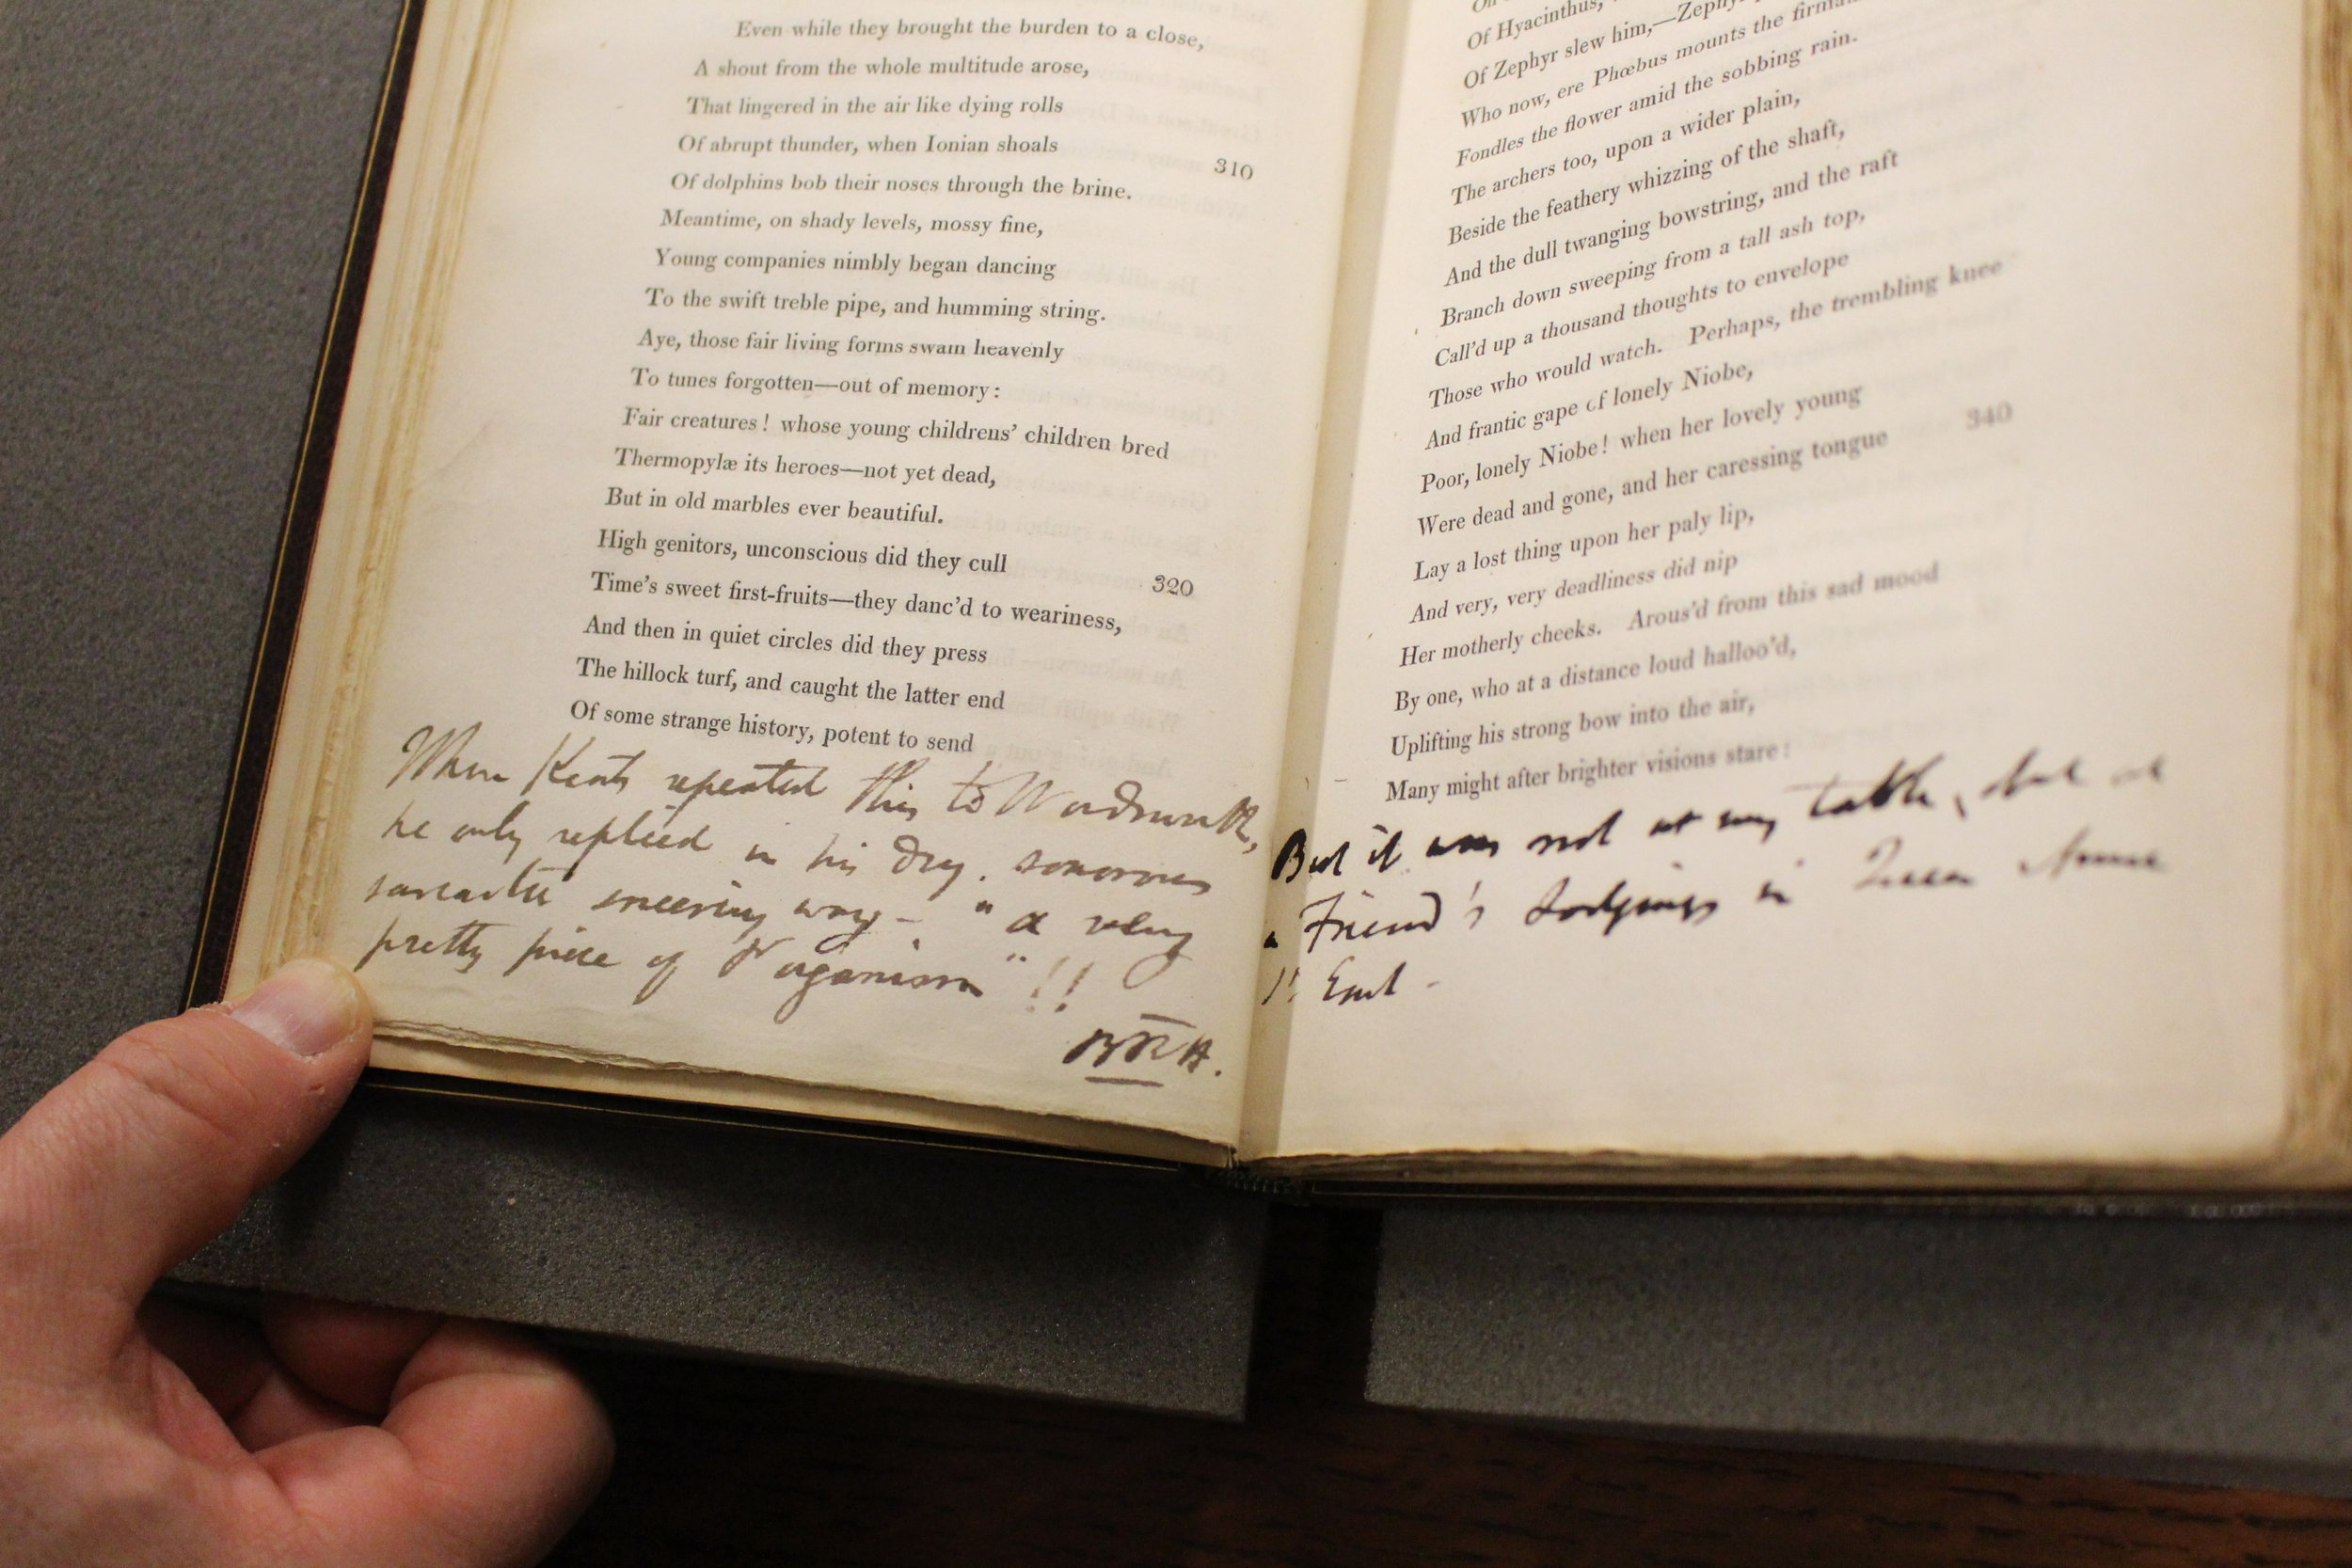 Even while they brought the burden to a close,
A shout from the whole multitude arose,
That lingered in the air like dying rolls
Of abrupt thunder, when Ionian shoals 310
Of dolphins bob their noses through the brine.
Meantime, on shady levels, mossy fine,
Young companies nimbly began dancing
To the swift treble pipe, and humming string.
Aye, those fair living forms swam heavenly
To tunes forgotten—out of memory:
Fair creatures! whose young childrens' children bred
Thermopylæ its heroes—not yet dead,
But in old marbles ever beautiful.
High genitors, unconscious did they cull 320
Time's sweet first-fruits—they danc'd to weariness,
And then in quiet circles did they press
The hillock turf, and caught the latter end
Of some strange history, potent to send
When Keats repeated this to Wordsworth,
he only replied in his dry, sonorous
sarcastic sneering way — "a very
pretty piece of Paganism" !!
BRH.
Of Hyacinthus,
Of Zephyr slew him,—
Who now, ere Phœbus mounts the
Fondles the flower amid the sobbing rain.
The archers too, upon a wider plain,
Beside the feathery whizzing of the shaft,
And the dull twanging bowstring, and the raft
Branch down sweeping from a tall ash top,
Call'd up a thousand thoughts to envelope
Those who would watch. Perhaps, the trembling knee
And frantic gape of lonely Niobe,
Poor, lonely Niobe! when her lovely young
Were dead and gone, and her caressing tongue 340
Lay a lost thing upon her paly lip,
And very, very deadliness did nip
Her motherly cheeks. Arous'd from this sad mood
By one, who at a distance loud halloo'd,
Uplifting his strong bow into the air,
Many might after brighter visions stare:
But it was not at my table, but at
a Friend's Lodgings in Queen Anne
St East -